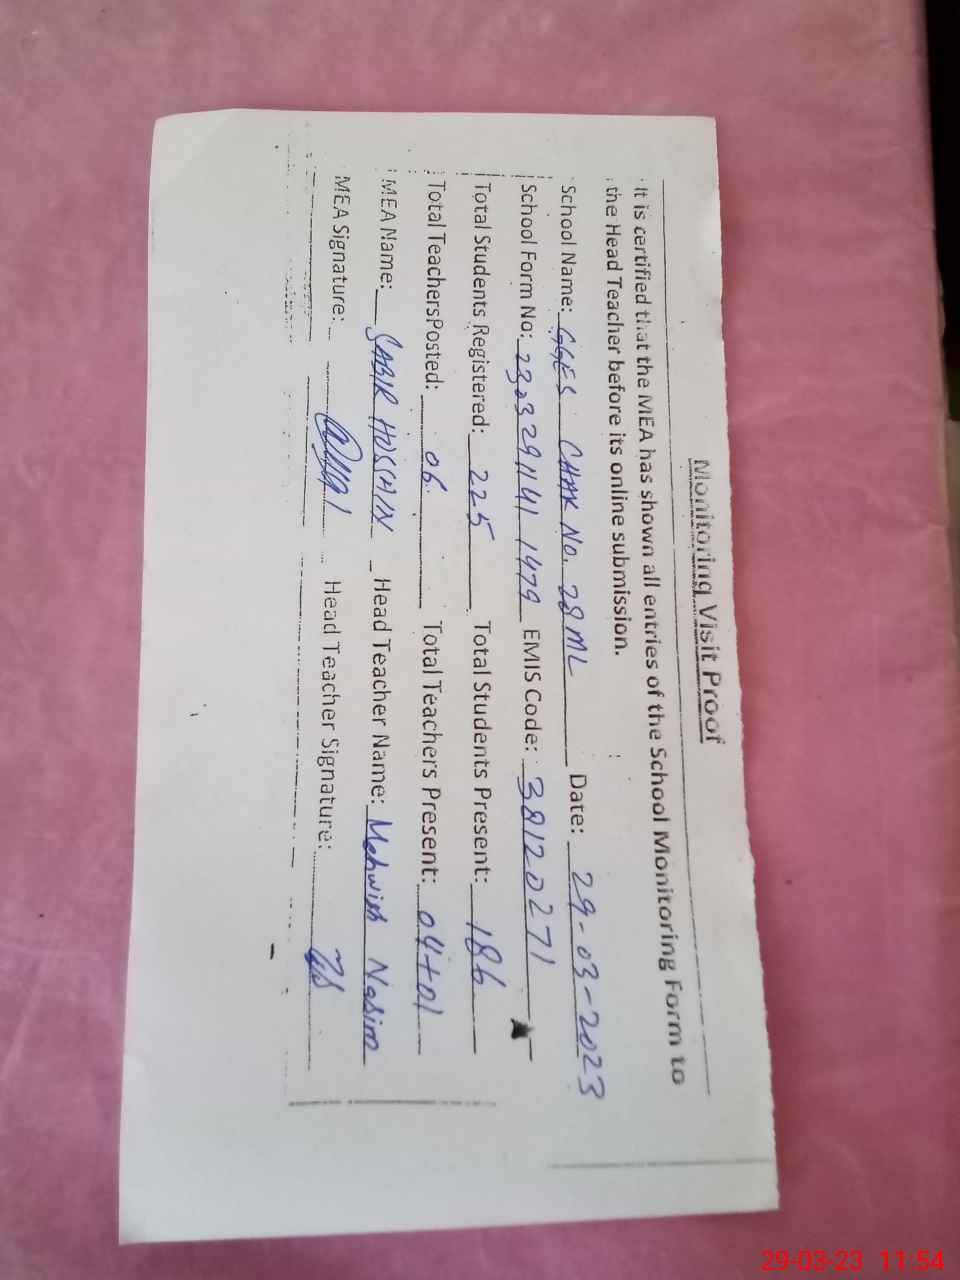 Monitoring Visit Proof
It is certified that the MEA has shown all entries of the School Monitoring Form to
the Head Teacher before its online submission.
School Name: GGES CHAK No. 28 ML Date: 29-03-2023
School Form No: 2303291141 1479 EMIS Code: 38120271
Total Students Registered: 225 Total Students Present: 186
Total TeachersPosted: 06 Total Teachers Present: 04+01
MEA Name: SABIR HUSSAIN Head Teacher Name: Mehwish Nasim
MEA Signature: Head Teacher Signature:
29-03-23 11:54